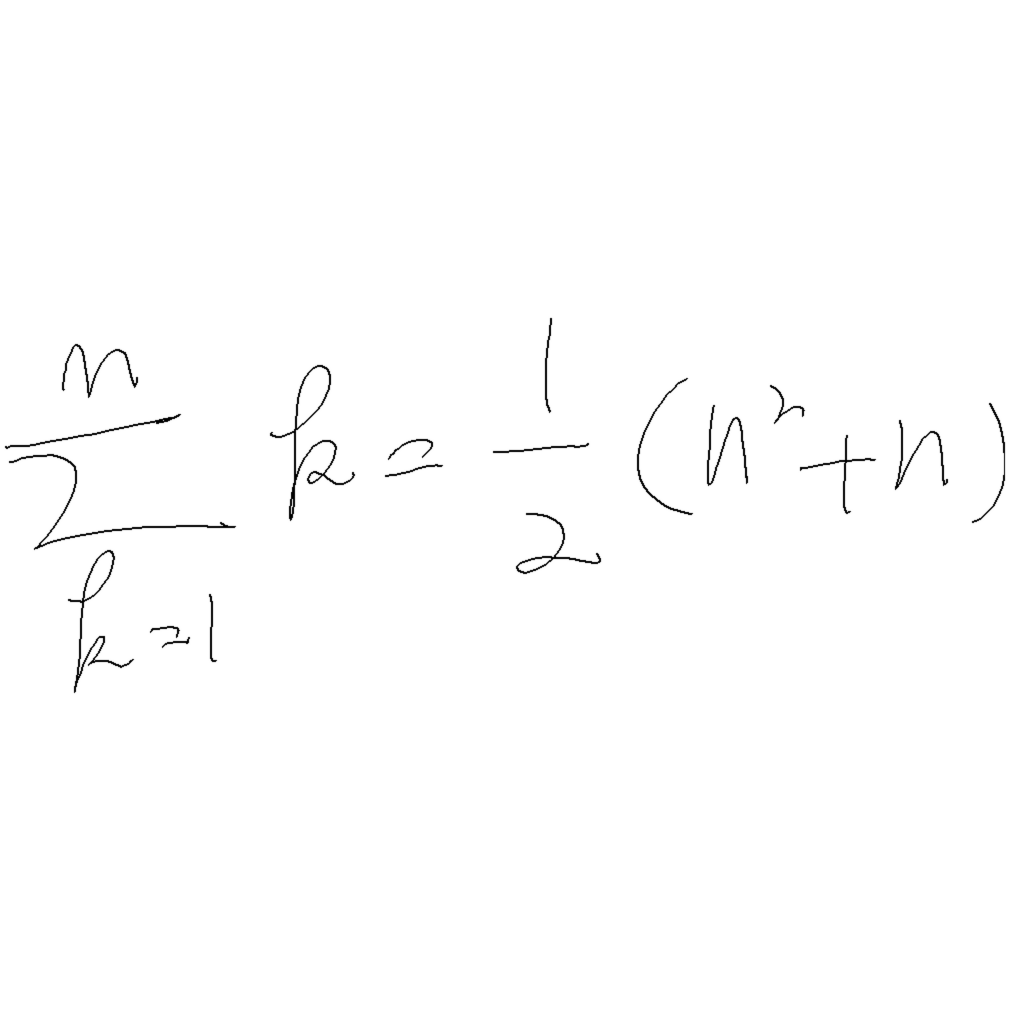 \sum_{k=1}^{n} k = \frac{1}{2} (n^2 + n)